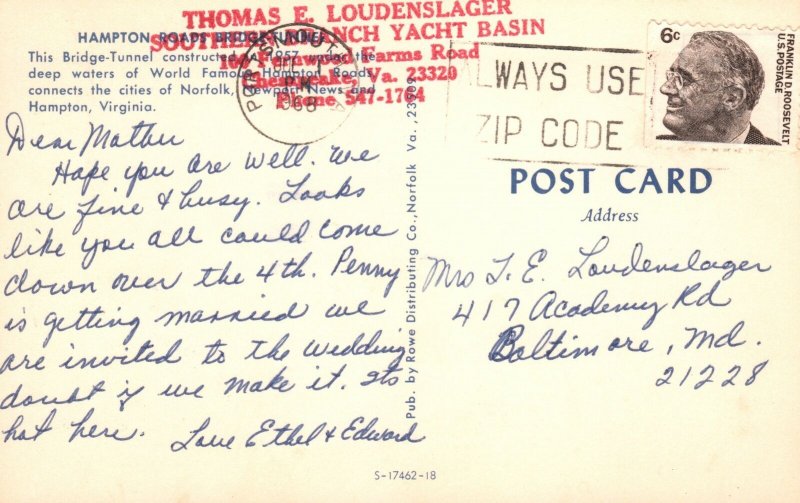 THOMAS E. LOUDENSLAGER
SOUTHERN BRANCH YACHT BASIN
Fernwood Farms Road
Chesapeake, Va. 23320
Phone 547-1764
HAMPTON ROADS BRIDGE-TUNNEL
This Bridge-Tunnel constructed 1957 the
deep waters of World Famous Hampton Roads
connects the cities of Norfolk, Newport News and
Hampton, Virginia.
PM
1968
ALWAYS USE
ZIP CODE
6c
FRANKLIN D. ROOSEVELT
U.S. POSTAGE
Dear Mother
Hope you are well. We
are fine & busy. Looks
like you all could come
down over the 4th. Penny
is getting married we
are invited to the wedding
doubt if we make it. Its
hot here.
Love Ethel & Edward
Pub. by Rowe Distributing Co., Norfolk Va.,
POST CARD
Address
Mrs T. E. Loudenslager
417 Academy Rd
Baltimore, Md.
21228
S-17462-18